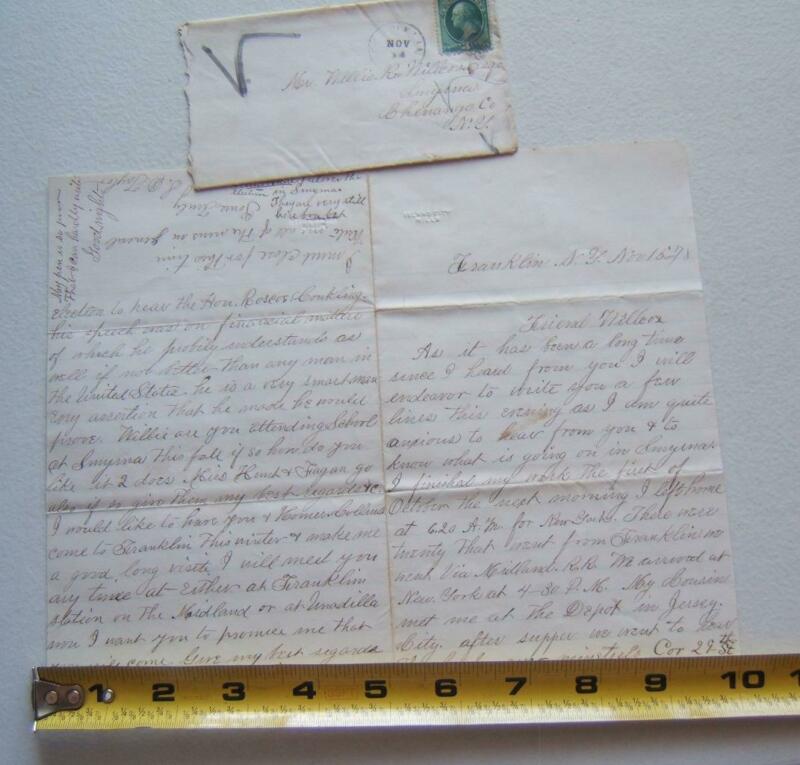 NOV
Mr. Willie R. Willcox
Smyrna
Chenango Co
N.Y.
Franklin N.Y. Nov 15
Friend Willcox
As it has been a long time
since I heard from you I will
endeavor to write you a few
lines this evening as I am quite
anxious to hear from you & to
know what is going on in Smyrna.
I finished my work the first of
October the next morning I left home
at 6.20 A.M. for New York. There were
twenty that went from Franklin we
went Via Midland. R.R. We arrived at
New York at 4-30 P.M. My Cousin
met me at the Depot in Jersey.
City. after supper we went to hear
minstrels Cor 29th St
election to hear the Hon. Roscoe Conkling
his speech was on financial matters
of which he probily understands as
well if not better than any man in
the United States. he is a very smart man
evry assertion that he made he would
prove. Willie are you attending School
at Smyrna this fall if so how do you
like it 2 does Miss Hunt & Fagan go
also if so give them my best regards &c.
I would like to have you & Homer Collins
come to Franklin this winter & make me
a good long visit, I will meet you
any time at Either at Franklin
station on the Midland or at Unadilla
now I want you to promise me that
you will come. Give my best regards
I must close for this time
Write me all of the news in general
Yours Truly
election in Smyrna
They are very still
here
My pen is so poor
That I can hardly write
Good night
1 2 3 4 5 6 7 8 9 10 1